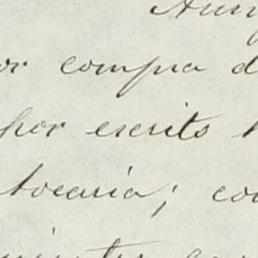 Aun
or compra d
por escrito
tocaria; co